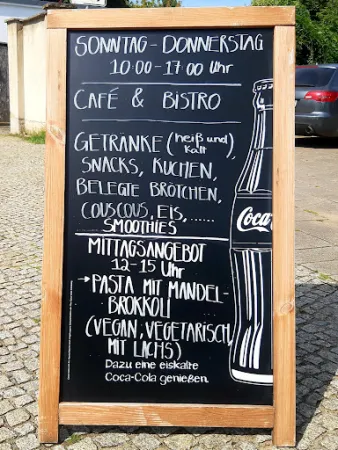 SONNTAG - DONNERSTAG
10:00 - 17:00 Uhr
CAFÉ & BISTRO
GETRÄNKE (heiß und kalt),
SNACKS, KUCHEN,
BELEGTE BRÖTCHEN,
COUSCOUS, EIS, ......
SMOOTHIES
MITTAGSANGEBOT
12-15 Uhr
→ PASTA MIT MANDEL-
BROKKOLI
(VEGAN, VEGETARISCH,
MIT LACHS)
Dazu eine eiskalte
Coca-Cola genießen.
Coca